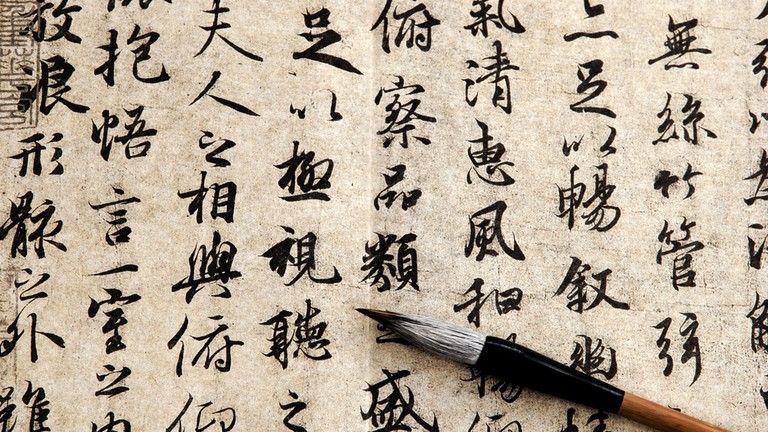 以為流
無絲竹管弦
亦足以暢叙幽情
氣清惠風和暢仰
俯察品類之盛
足以極視聽之
夫人之相與俯仰
懷抱悟言一室之內
放浪形骸之外雖